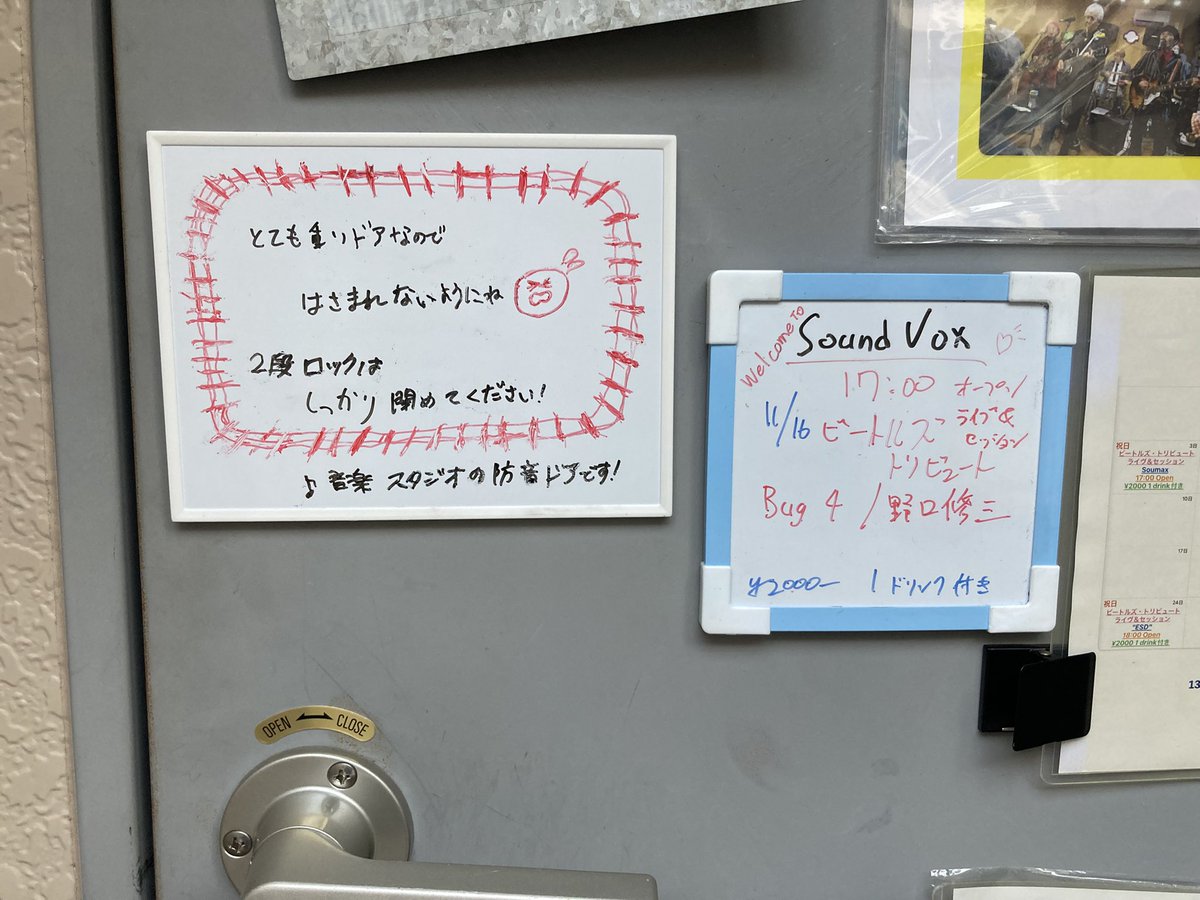 とても重いドアなので
はさまれないようにね
2段ロックは
しっかり閉めてください!
♪音楽スタジオの防音ドアです!
Welcome To
Sound Vox
17:00 オープン
11/16 ビートルズ ライブ&
セッション
トリビュート
Bug 4 / 野口修三
¥2000- 1ドリンク付き
OPEN ↔ CLOSE
祝日 3日
ビートルズ・トリビュート
ライヴ&セッション
Soumax
17:00 Open
¥2000 1 drink付き
10日
17日
祝日 24日
ビートルズ・トリビュート
ライヴ&セッション
"ESD"
18:00 Open
¥2000 1 drink付き
13